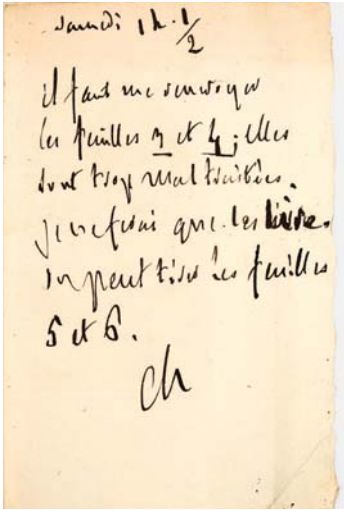 samedi 1 h. 1/2
il faut me renvoyer
les feuilles 3 et 4 ; elles
sont trop maltraitées.
je ne ferai que les lire.
on peut tirer les feuilles
5 et 6.
Ch